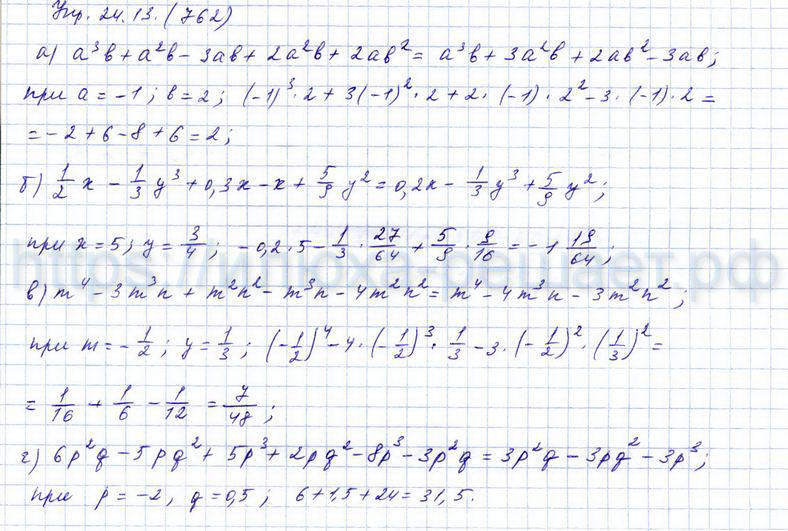 Упр. 24.13. (762)
а) a³b + a²b - 3ab + 2a²b + 2ab² = a³b + 3a²b + 2ab² - 3ab;
при a = -1; b = 2; (-1)³·2 + 3(-1)²·2 + 2·(-1)·2² - 3·(-1)·2 =
= -2 + 6 - 8 + 6 = 2;
б) 1/2 x - 1/3 y³ + 0,3x - x + 5/9 y² = 0,2x - 1/3 y³ + 5/9 y²;
при x = 5; y = 3/4; -0,2·5 - 1/3 · 27/64 + 5/9 · 9/16 = -1 19/64;
в) m⁴ - 3m³n + m²n² - m³n - 4m²n² = m⁴ - 4m³n - 3m²n²;
при m = -1/2; y = 1/3; (-1/2)⁴ - 4·(-1/2)³· 1/3 - 3·(-1/2)²·(1/3)² =
= 1/16 + 1/6 - 1/12 = 7/48;
г) 6p²q - 5pq² + 5p³ + 2pq² - 8p³ - 3p²q = 3p²q - 3pq² - 3p³;
при p = -2, q = 0,5; 6 + 1,5 + 24 = 31,5.